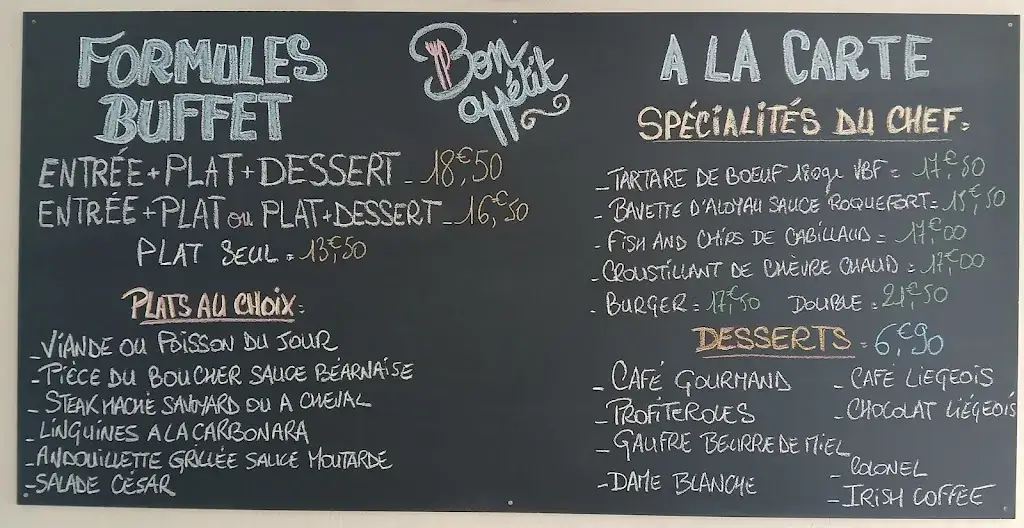 FORMULES
BUFFET
ENTRÉE+PLAT+DESSERT_18€,50
ENTRÉE+PLAT ou PLAT+DESSERT_16€,50
PLAT SEUL = 13€,50
PLATS AU CHOIX:
-VIANDE OU POISSON DU JOUR
-PIÈCE DU BOUCHER SAUCE BÉARNAISE
-STEAK HACHÉ SAVOYARD OU A CHEVAL
-LINGUINES A LA CARBONARA
-ANDOUILLETTE GRILLÉE SAUCE MOUTARDE
-SALADE CÉSAR
Bon
appétit
A LA CARTE
SPÉCIALITÉS DU CHEF:
-TARTARE DE BOEUF 180gr VBF = 17€,50
-BAVETTE D'ALOYAU SAUCE ROQUEFORT= 15€,50
-FISH AND CHIPS DE CABILLAUD = 17€,00
-CROUSTILLANT DE CHÈVRE CHAUD = 17€,00
-BURGER = 17€,50 DOUBLE = 21€,50
DESSERTS = 6€,90
-CAFÉ GOURMAND
-PROFITEROLES
-GAUFRE BEURRE DE MIEL
-DAME BLANCHE
-CAFÉ LIEGEOIS
-CHOCOLAT LIÉGEOIS
-COLONEL
-IRISH COFFEE